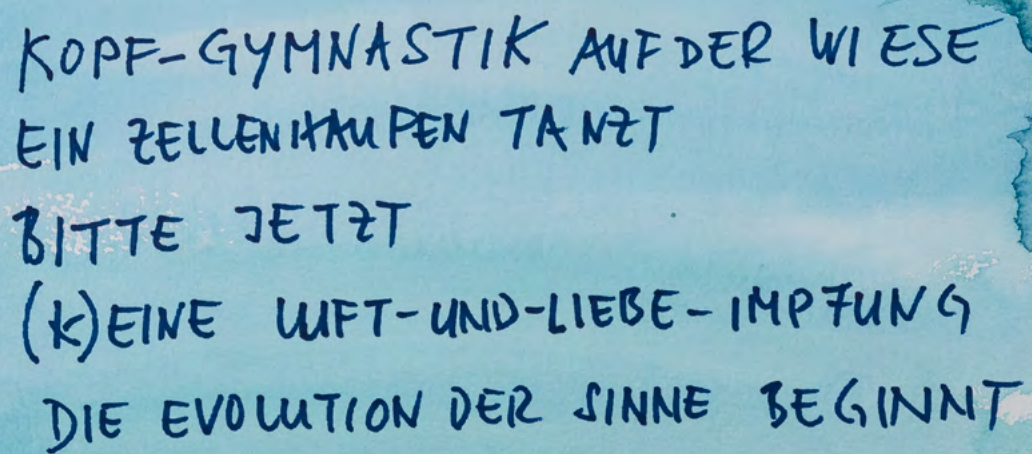 KOPF-GYMNASTIK AUF DER WIESE
EIN ZELLENHAUFEN TANZT
BITTE JETZT
(K)EINE LUFT-UND-LIEBE-IMPFUNG
DIE EVOLUTION DER SINNE BEGINNT